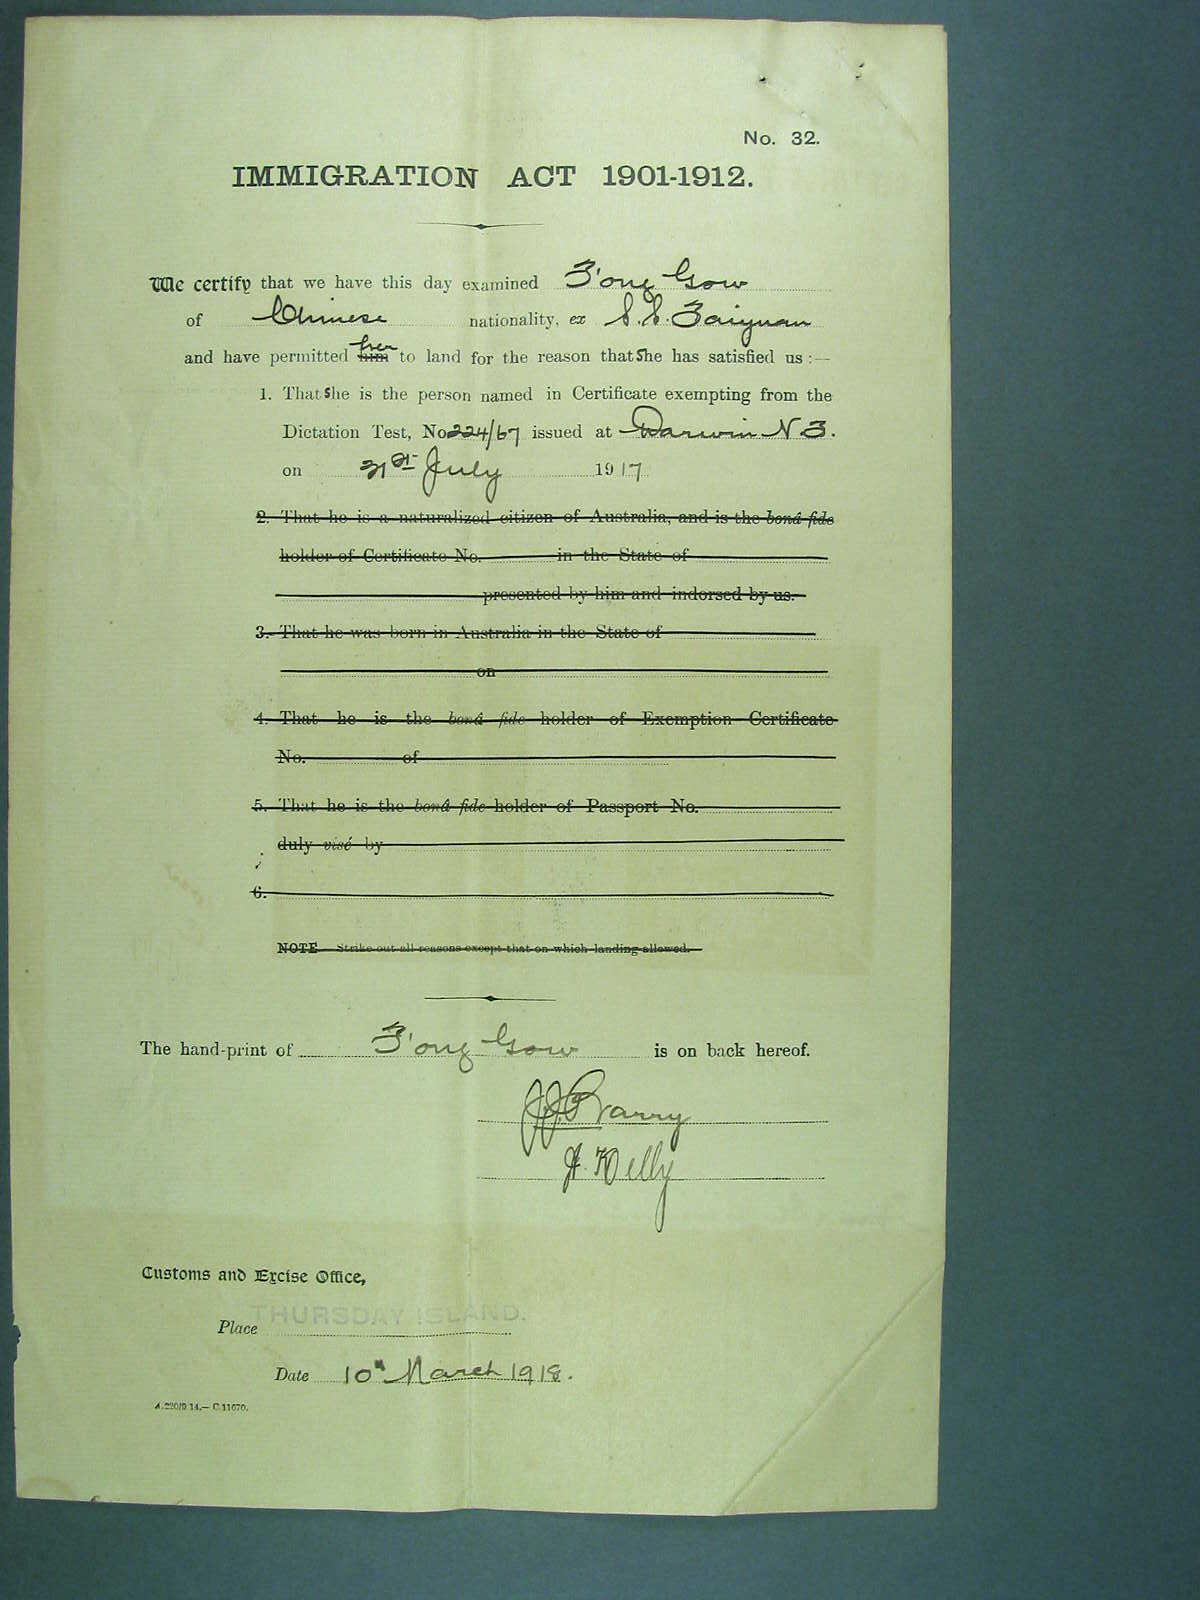 No. 32.
IMMIGRATION ACT 1901-1912.
We certify that we have this day examined T'ong Gow
of Chinese nationality, ex S.S. Taiyuan
and have permitted him her to land for the reason that She has satisfied us :—
1. That She is the person named in Certificate exempting from the
Dictation Test, No 224/67 issued at Darwin N T.
on 21st July 1917
2. That he is a naturalized citizen of Australia, and is the bonâ fide
holder of Certificate No. in the State of
presented by him and indorsed by us.
3. That he was born in Australia in the State of
on
4. That he is the bonâ fide holder of Exemption Certificate
No. of
5. That he is the bonâ fide holder of Passport No.
duly visé by
6.
NOTE Strike out all reasons except that on which landing allowed.
The hand-print of T'ong Gow is on back hereof.
JJ Barry
Kelly
Customs and Excise Office,
Place THURSDAY ISLAND.
Date 10th March 1918.
C.11670.